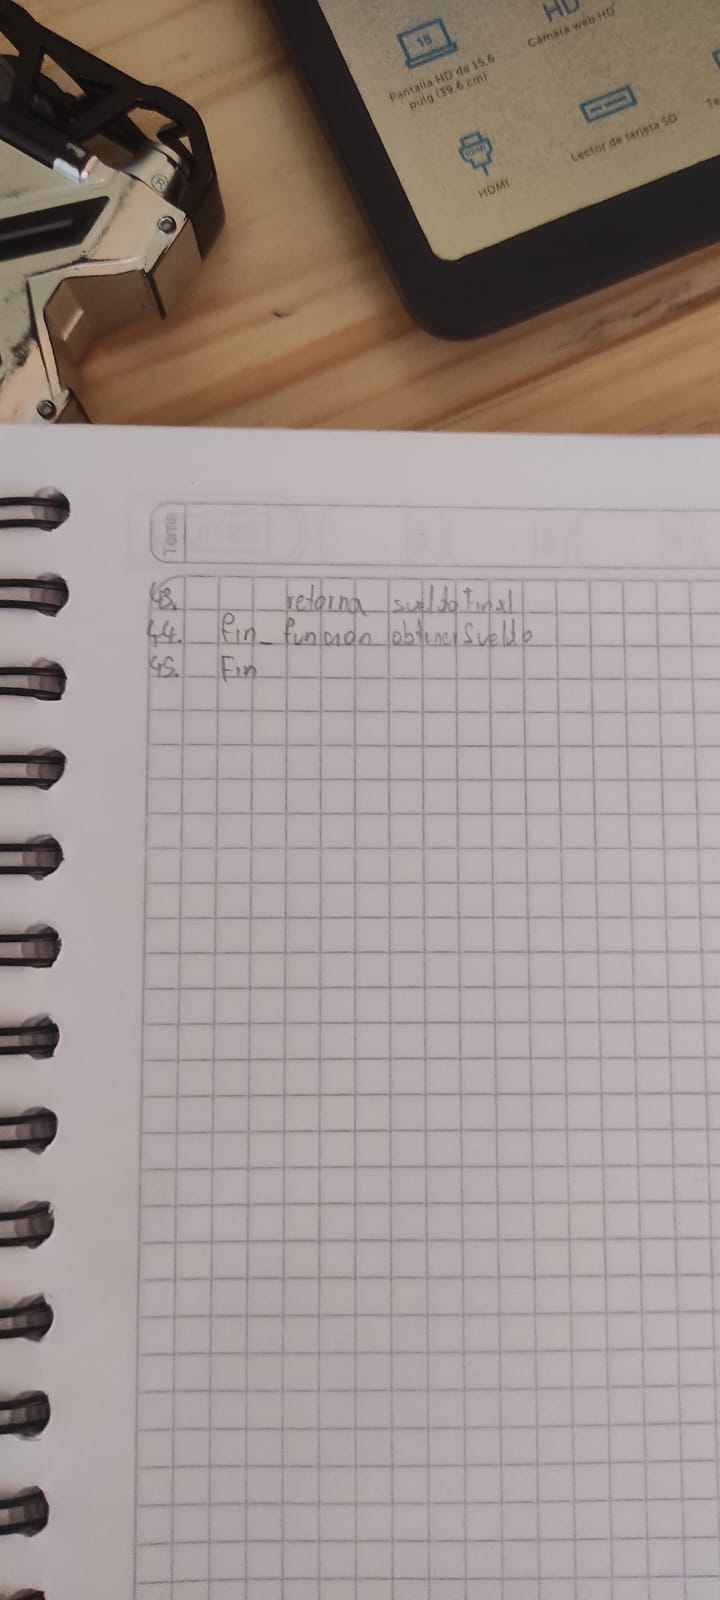 15
Pantalla HD de 15,6
pulg (39,6 cm)
HD
Cámara web HD
HDMI
HDMI
Lector de tarjeta SD
Te
®
Tema
43. retorna sueldoFinal
44. fin_funcion obtenerSueldo
45. Fin